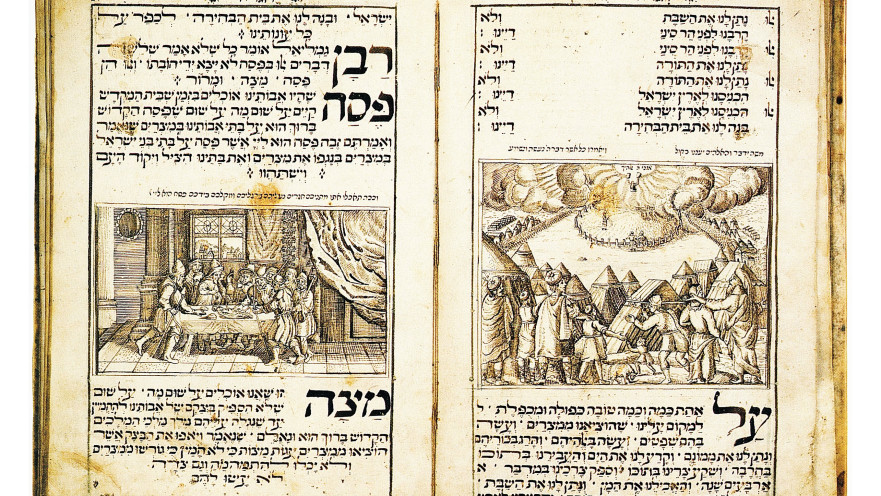 או נתן לנו את השבת ולא
קרבנו לפני הר סיני דיינו :
או קרבנו לפני הר סיני ולא
נתן לנו את התורה דיינו :
או נתן לנו את התורה ולא
הכניסנו לארץ ישראל דיינו :
או הכניסנו לארץ ישראל ולא
בנה לנו את בית הבחירה דיינו :
משה ידבר והאלהים יעננו בקול
ויאמרו כל אשר דבר ה' נעשה ונשמע
אנכי ה' אלהיך
על אחת כמה וכמה טובה כפולה ומכופלת
למקום עלינו שהוציאנו ממצרים ועשה
בהם שפטים ועשה באלהיהם והרג בכוריהם
ונתן לנו את ממונם וקרע לנו את הים והעבירנו בתוכו
בחרבה ושקע צרינו בתוכו וספק צרכינו במדבר
ארבעים שנה והאכילנו את המן ונתן לנו את השבת
ישראל ובנה לנו את בית הבחירה לכפר על
כל עונותינו
רבן גמליאל אומר כל שלא אמר שלשה
דברים או בפסח לא יצא ידי חובתו ואו הן
פסח מצה ומרור
פסח שהיו אבותינו אוכלים בזמן שבית המקדש
קיים על שום מה על שום שפסח הקדוש
ברוך הוא על בתי אבותינו במצרים שנאמר
ואמרתם זבח פסח הוא ליי אשר פסח על בתי בני ישראל
במצרים בנגפו את מצרים ואת בתינו הציל ויקוד העם
וישתחוו
וככה תאכלו אתו מתניכם חגרים נעליכם ברגליכם ומקלכם בידכם פסח הוא ליי
מצה זו שאנו אוכלים על שום מה על שום
שלא הספיק בצקם של אבותינו להחמיץ
עד שנגלה עליהם מלך מלכי המלכים
הקדוש ברוך הוא וגאלם שנאמר ויאפו את הבצק אשר
הוציאו ממצרים עגות מצות כי לא חמץ כי גורשו ממצרים
ולא יכלו להתמהמה וגם צדה
לא עשו להם